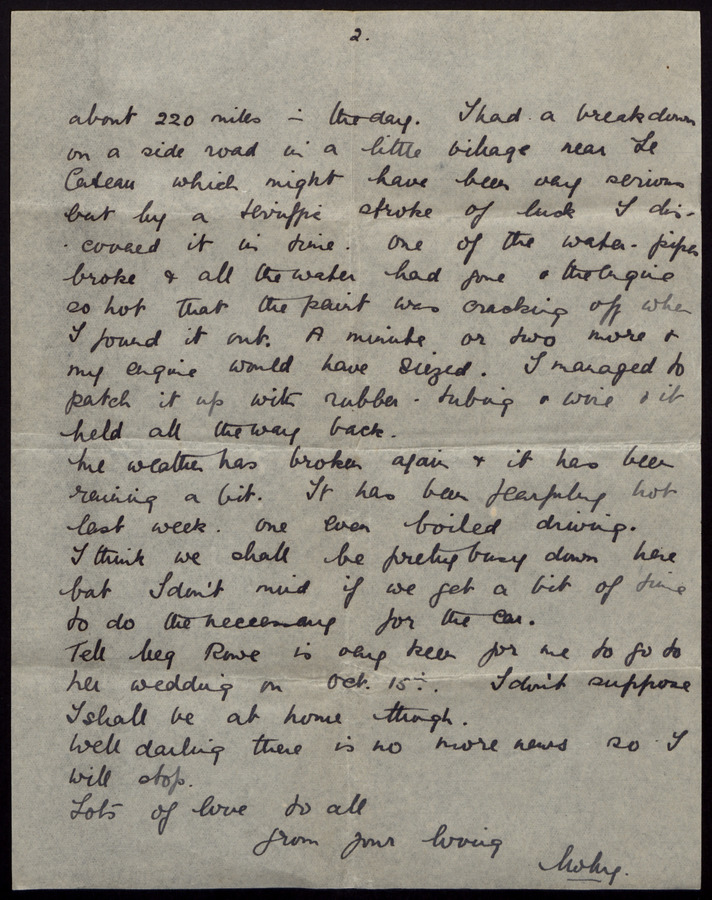 2.
about 220 miles in the day. I had a breakdown
on a side road in a little village near Le
Cateau which might have been very serious
but by a terriffic stroke of luck I dis-
-covered it in time. One of the water-pipes
broke & all the water had gone & the engine
so hot that the paint was cracking off when
I found it out. A minute or two more &
my engine would have siezed. I managed to
patch it up with rubber-tubing & wire & it
held all the way back.
The weather has broken again & it has been
raining a bit. It has been fearfully hot
last week. One even boiled driving.
I think we shall be pretty busy down here
but I don't mind if we get a bit of time
to do the neccessary for the car.
Tell Meg Rowe is very keen for me to go to
her wedding on Oct. 15th. I don't suppose
I shall be at home though.
Well darling there is no more news so I
will stop.
Lots of love to all
from your loving